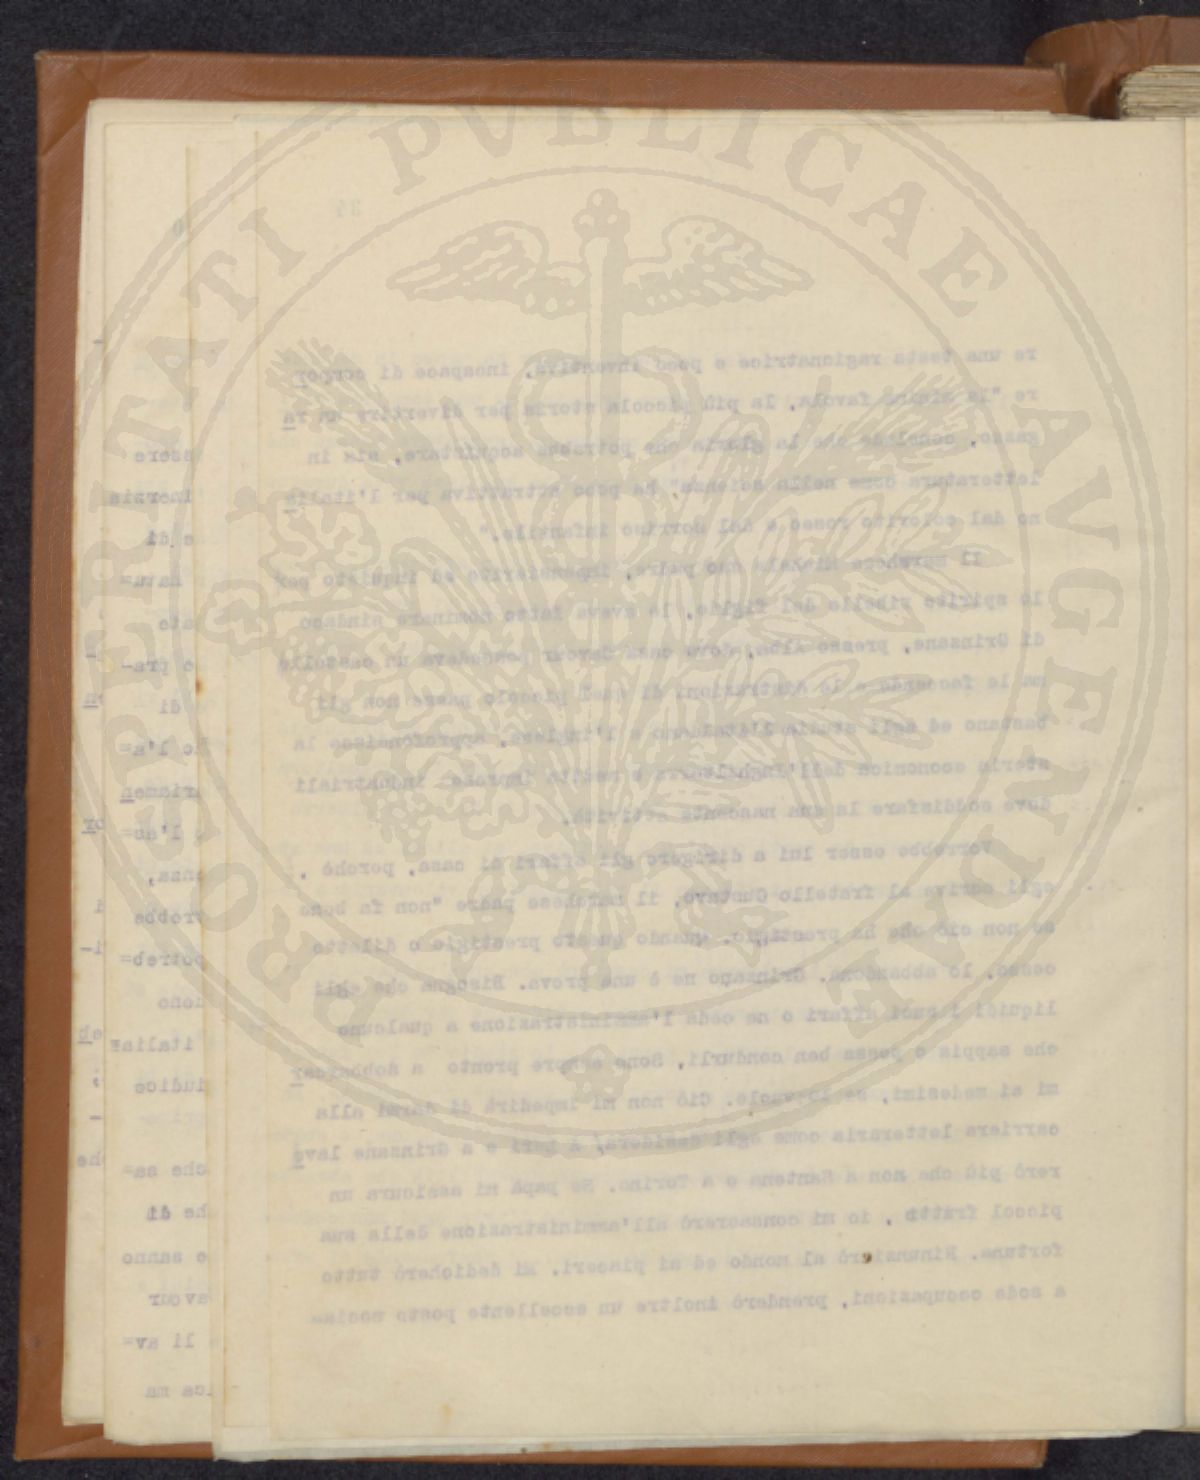 PROSPERITATI PVBLICAE AVGENDAE
34
re una testa ragionatrice e poco inventiva, incapace di compor
re "la minima favola, la più piccola storia per divertire un ra
gazzo, conclude che la gloria che potrebbe acquistare, sia in
letteratura come nella scienza" ha poco attrattiva per l'italia
no dal colorito roseo e dal sorriso infantile."
Il marchese Michele suo padre, impensierito ed inquieto per
lo spirito ribelle del figlio, lo aveva fatto nominare sindaco
di Grinzane, presso Alba, dove casa Cavour possedeva un castello
ma le faccende e le distrazioni di quel piccolo paese non gli
bastano ed egli studia l'italiano e l'inglese, approfondisce la
storia economica dell'Inghilterra e medita imprese industriali
dove soddisfare la sua nascente attività.
Vorrebbe esser lui a dirigere gli affari di casa, perchè ,
egli scrive al fratello Gustavo, il marchese padre "non fa bene
se non ciò che ha prestigio, quando questo prestigio o diletto
cessa, lo abbandona. Grinzane ne è una prova. Bisogna che egli
liquidi i suoi affari o ne ceda l'amministrazione a qualcuno
che sappia e possa ben condurli. Sono sempre pronto a sobbarcar
mi ai medesimi, se lo vuole. Ciò non mi impedirà di darmi alla
carriera letteraria come egli desidera, a Leri e a Grinzane lavo
rerò più che non a Santena o a Torino. Se papà mi assicura un
piccol frutto , io mi consacrerò all'amministrazione della sua
fortuna. Rinunzierò al mondo ed ai piaceri. Mi dedicherò tutto
a sode occupazioni, prenderò inoltre un eccellente posto socia=
0
ssere
inernia
e di
natu=
ato
e pra-
di
he l'a=
riamen
l'as=
enza,
rebbe
potreb=
dono
italia=
iudice
che sa=
he di
e sanno
avour
li av=
ica ma